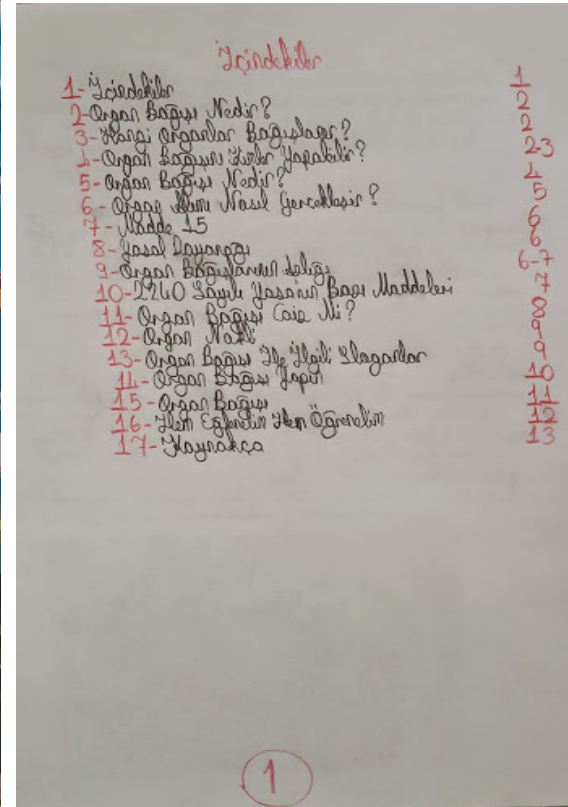 İçindekiler
1- İçindekiler 1
2- Organ Bağışı Nedir? 2
3- Hangi Organlar Bağışlanır? 2
4- Organ Bağışını Kimler Yapabilir? 2-3
5- Organ Bağışı Nedir? 4
6- Organ Nasıl Gerçekleşir? 5
7- Madde 15 6
8- Yasal Dayanağı 6
9- Organ Bağışlarının 6-7
10- 2240 Sayılı Yasanın Bazı Maddeleri 7
11- Organ Bağışı Caiz Mi? 8
12- Organ Nakli 9
13- Organ Bağışı İle İlgili Sloganlar 9
14- Organ Bağışı Yapın 10
15- Organ Bağışı 11
16- Hem Eğlenelim Hem Öğrenelim 12
17- Kaynakça 13
1